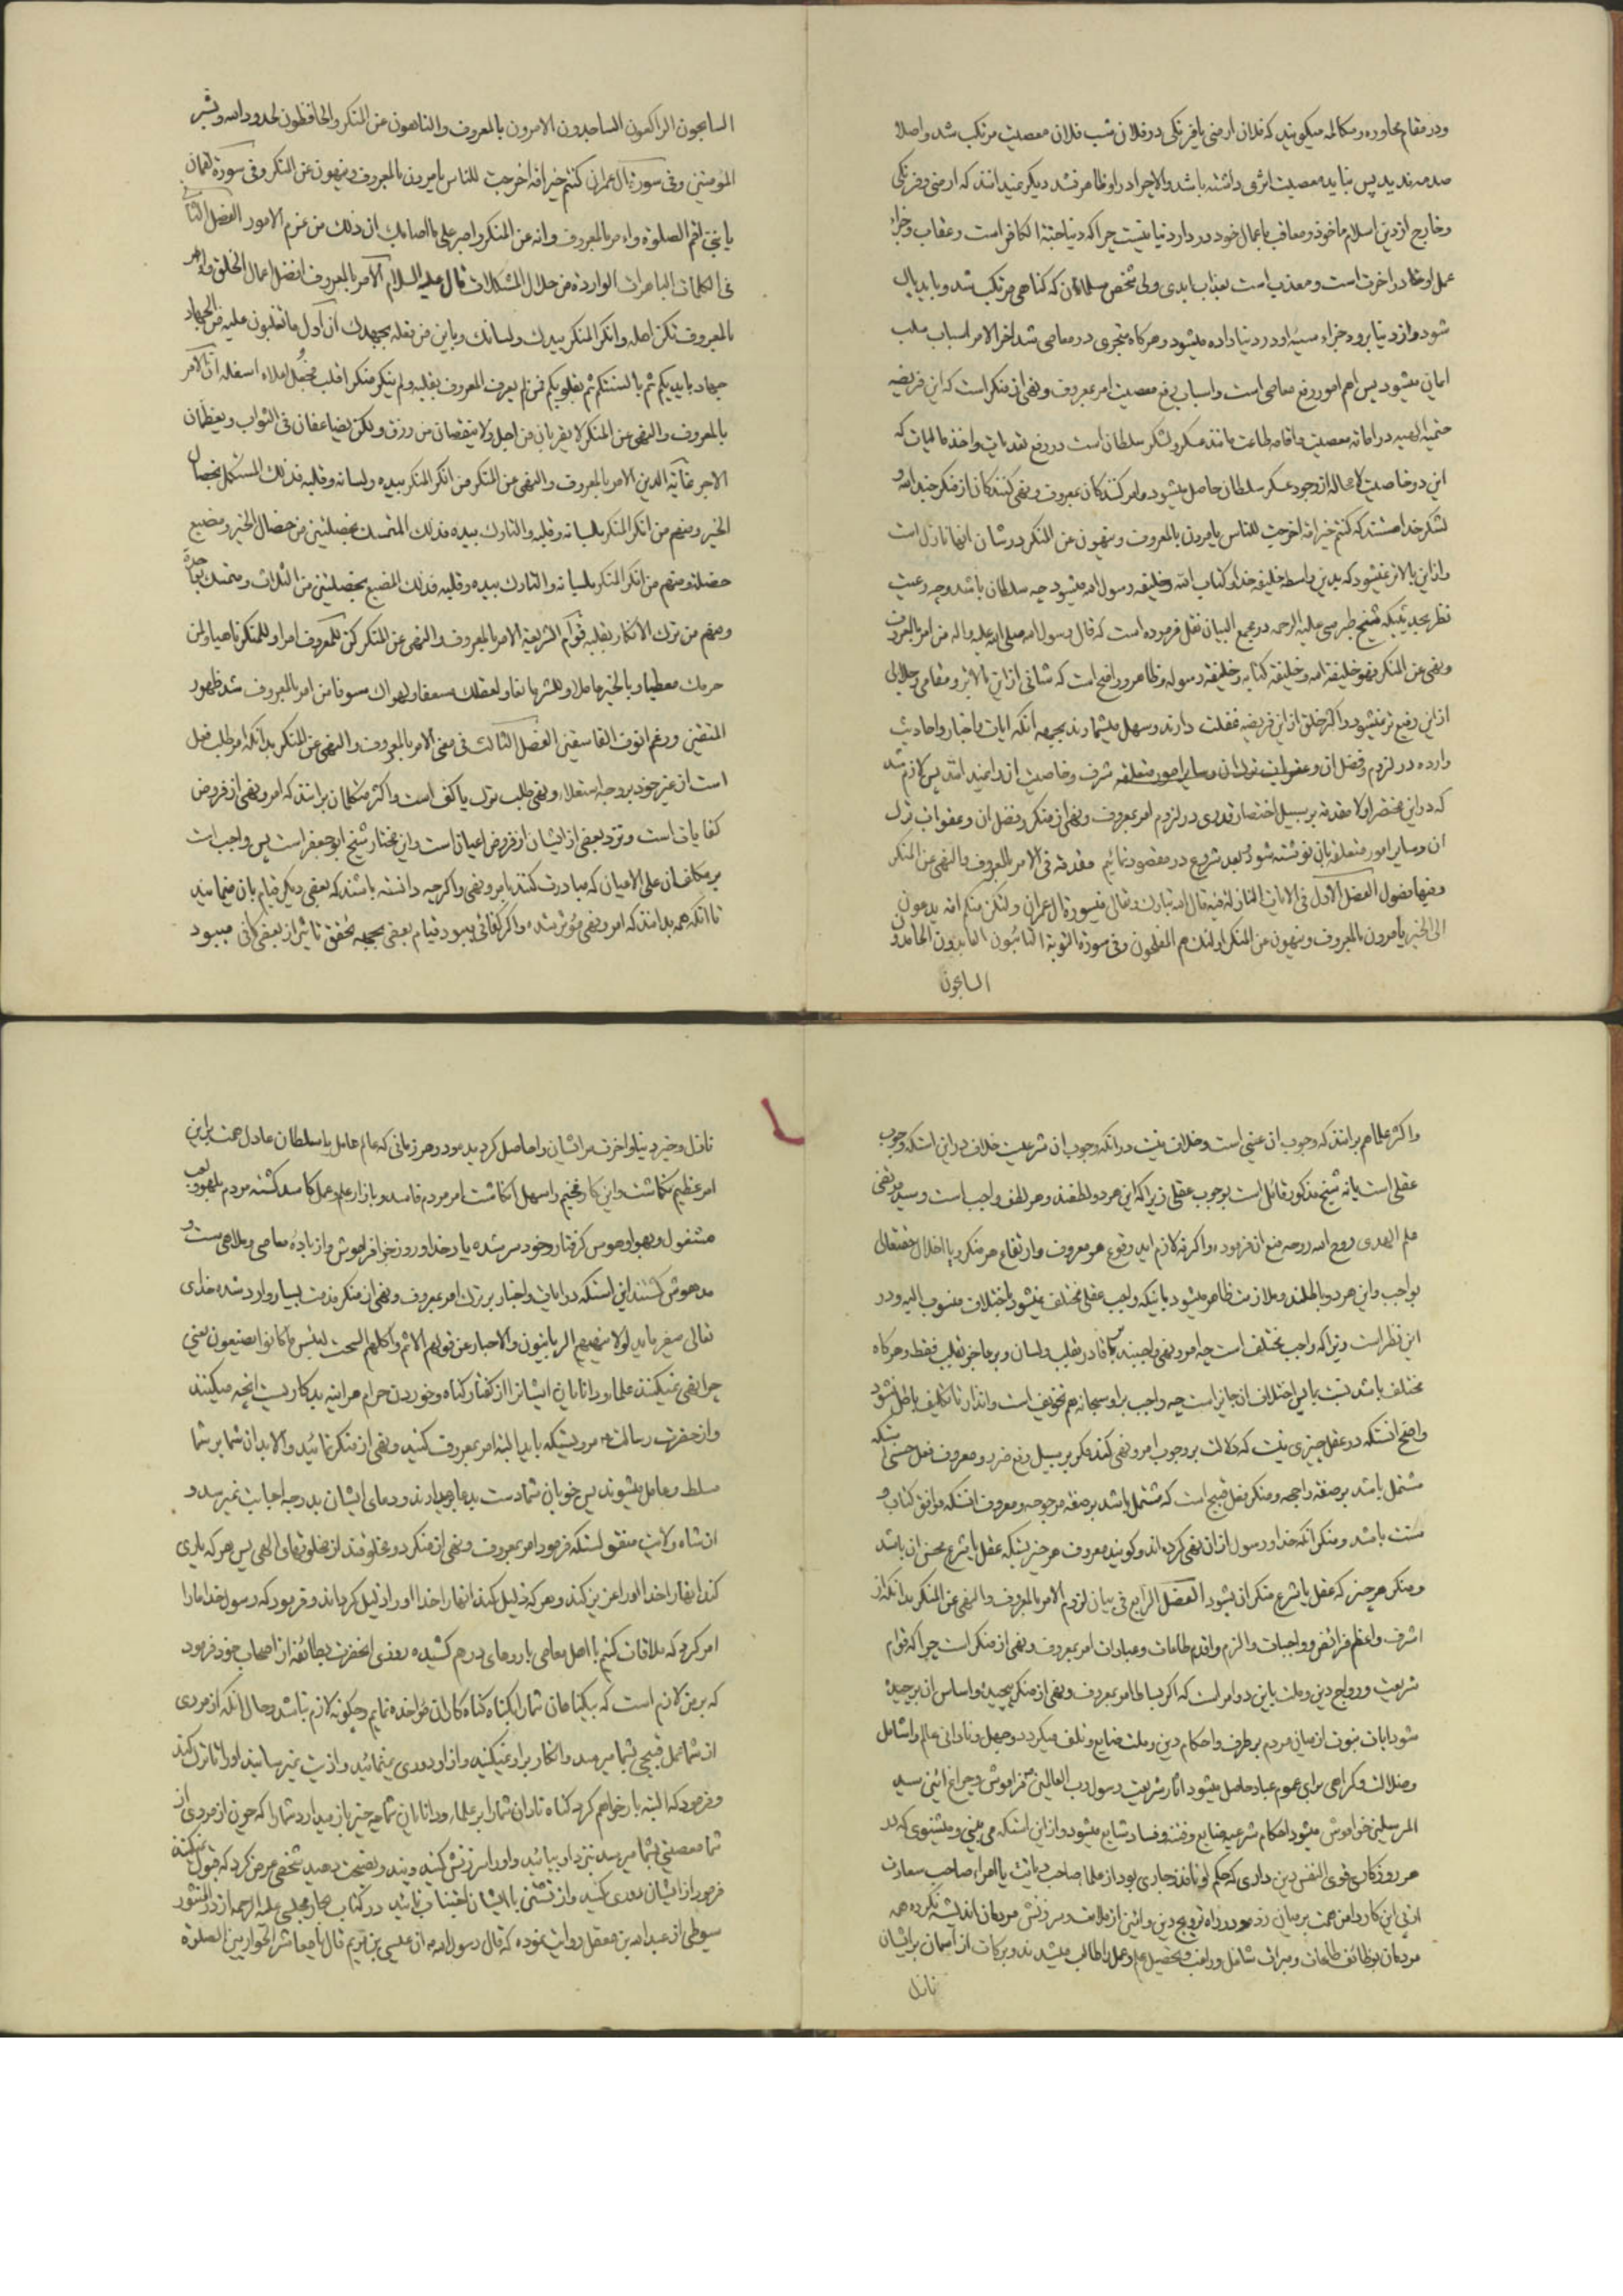 ودر مقام محاوره ومکالمه میکویند که فلان ارمنی یا فرنکی در فلان شب فلان معصیت مرتکب شد واصلا
صدمه ندید پس نباید معصیت اثری داشته باشد والا چرا در او ظاهر نشد دیکر نمیدانند که ارمنی وفرنکی
وخارج از دین اسلام ماخوذ ومعاقب باعمال خود در دار دنیا نیست چرا که دنیا جنة الکافر است وعقاب وجزاء
عمل او در اخرت است ومعذب است بعذاب ابدی ولی شخص مسلمان که کناهی مرتکب شد وباید پاک
شود واز دنیا برود جزاء سیئه او در دنیا داده میشود وهرکاه متجری در معاصی شد اخر الامر اسباب سلب
ایمان میشود پس اهم امور رفع معاصی است واسباب رفع معصیت امر بمعروف ونهی از منکر است که این فریضه
حتمیه الهیه در اماته معصیت واقامه طاعت مانند عسکر ولشکر سلطان است در رفع تعدیات واخذ مالیات که
این دو خاصیت لا محاله از وجود عسکر سلطان حاصل میشود وامر کنندکان بمعروف ونهی کنندکان از منکر جند الله و
لشکر خدا هستند که کنتم خیر امة اخرجت للناس یامرون بالمعروف وینهون عن المنکر در شان انها نازل است
واز این بالاتر نمیشود که بدین واسطه خلیفه خدا وکتاب الله وخلیفه رسول الله میشود چه سلطان باشد وچه رعیت
نظر بحدیثیکه شیخ طبرسی علیه الرحمه در مجمع البیان نقل فرموده است که قال رسول الله صلی الله علیه واله من امر بالمعروف
ونهی عن المنکر فهو خلیفة الله وخلیفة کتابه وخلیفة رسوله وظاهر وواضح است که شانی از این بالاتر ومقامی وجلالی
از این رفیع تر نمیشود واکثر خلق از این فریضه غفلت دارند وسهل میشمارند بجهه انکه ایات واخبار واحادیث
وارده در لزوم وفضل ان وعقوبات ترک ان وسایر امور متعلقه شرف وخاصیت انرا نمیدانند پس لازم شد
که در این مختصر اولا مقدمه بر سبیل اختصار قدری در لزوم امر بمعروف ونهی از منکر وفضل ان وعقوبات ترک
ان وسایر امور متعلقه بان نوشته شود وبعد شروع در مقصود نمائیم مقدمة فی الامر بالمعروف والنهی عن المنکر
وفیها فصول الفصل الاول فی الایات النازلة فیه قال الله تبارک وتعالی فی سورة ال عمران ولتکن منکم امة یدعون
الی الخیر یأمرون بالمعروف وینهون عن المنکر اولئک هم المفلحون وفی سورة التوبة التائبون العابدون الحامدون
السایحون
السایحون الراکعون الساجدون الامرون بالمعروف والناهون عن المنکر والحافظون لحدود الله وبشر
المؤمنین وفی سورة ال عمران کنتم خیر امة اخرجت للناس یامرون بالمعروف وینهون عن المنکر وفی سورة لقمان
یا بنی اقم الصلوة وامر بالمعروف وانه عن المنکر واصبر علی ما اصابک ان ذلک من عزم الامور الفصل الثانی
فی الکلمات الباهرات الواردة من حلال المشکلات قال علیه السلام الآمر بالمعروف افضل اعمال الخلق وامر
بالمعروف تکن اهله وانکر المنکر بیدک ولسانک وباین من فعله بجهدک ان اول ما تغلبون علیه من الجهاد
جهاد بایدیکم ثم بالسنتکم ثم بقلوبکم فمن لم یعرف المعروف بقلبه ولم ینکر منکرا قلب فجعل اعلاه اسفله ان الامر
بالمعروف والنهی عن المنکر لا یقربان من اجل ولا ینقصان من رزق ولکن یضاعفان فی الثواب ویعظمان
الاجر غایة الدین الامر بالمعروف والنهی عن المنکر من انکر المنکر بیده ولسانه وقلبه فذلک المستکمل لخصال
الخیر ومنهم من انکر المنکر بلسانه وقلبه والتارک بیده فذلک المتمسک بخصلتین من خصال الخیر ومضیع
خصلة ومنهم من انکر المنکر بلسانه والتارک بیده وقلبه فذلک المضیع بخصلتین من الثلاث ومتمسک بواحدة
ومنهم من ترک الانکار بقلبه قوام الشریعة الامر بالمعروف والنهی عن المنکر کن للمعروف امرا وللمنکر ناهیا ولمن
حرمک معطیا وبالخیر عاملا وللشر مانعا ولعقلک مسعفا ولهواک مسوفا من امر بالمعروف شد ظهور
المتقین ورغم انوف الفاسقین الفصل الثالث فی معنی الامر بالمعروف والنهی عن المنکر بدانکه امر طلب فعل
است از غیر خود بر وجه استعلاء ونهی طلب ترک یا کف است واکثر متکلمان برانند که امر ونهی از فروض
کفایات است ونزد بعضی از ایشان از فروض اعیان است واین مختار شیخ ابو جعفر است پس واجب است
بر مکلفان علی الاعیان که مبادرت کنند بامر ونهی واکرچه دانسته باشند که بعضی دیکر قیام بان مینمایند
تا انکه همه بدانند که امر ونهی مؤثر شد واکر کفائی بود قیام بعضی بجهه تحقق تاثیر از بعضی کافی میبود
واکثر علما هم برانند که وجوب ان عینی است وخلاف نیست در انکه وجوب ان شرعیست خلاف در این استکه وجوب
عقلی است یا نه شیخ مذکور قائل است بوجوب عقلی زیرا که این هر دو لطفند وهر لطف واجب است وسید مرتضی
علم الهدی روح الله روحه منع ان فرموده والا لازم اید وقوع هر معروف وارتفاع هر منکر ویا اخلال حقتعالی
بواجب واین هر دو باطلند وملازمت ظاهر میشود باینکه واجب عقلی مختلف نمیشود باختلاف منسوب الیه ودر
این نظر است زیرا که واجب مختلف است چه امر ونهی واجبند بر قادر بقلب ولسان وبر عاجز بقلب فقط وهرکاه
مختلف باشد نسبت بما پس اختلاف ان جایز است چه واجب بر او سبحانه هم تخویف است وانذار تا تکلیف باطل نشود
واضح انستکه در عقل چیزی نیست که دلالت بر وجوب امر ونهی کند مکر بر سبیل دفع ضرر ومعروف فعل حسنی استکه
مشتمل باشد بر صفة راجحه ومنکر فعل قبیح است که مشتمل باشد بر صفه مرجوحه ومعروف انستکه موافق کتاب و
سنت باشد ومنکر انکه خدا ورسول از ان نهی کرده اند وکویند معروف هر چیزیستکه عقل یا شرع محسن ان باشد
ومنکر هر چیز که عقل یا شرع منکر ان بشود الفصل الرابع فی بیان لزوم الامر بالمعروف والنهی عن المنکر بدانکه از
اشرف واعظم فرائض وواجبات والزم واقدم طاعات وعبادات امر بمعروف ونهی از منکر است چرا که قوام
شریعت ورواج دین وملت باین دو امر است که اکر بساط امر بمعروف ونهی از منکر پیچیده واساس ان برچیده
شود ایات نبوت از میان مردم بر طرف واحکام دین وملت ضایع وتلف میکردد وجهل ونادانی عالم را شامل
وضلالت وکمراهی برای عموم عباد حاصل میشود اثار شریعت رسول رب العالمین فراموش وچراغ ائین سید
المرسلین خواموش میشود احکام شرعیه ضایع وفتنه وفساد شایع میشود واز این استکه می بینی ومیشنوی که در
هر روز کاری قوی النفس دین داری که حکم او نافذ وجاری بود از علما صاحب دیانت یا امراء صاحب سعادت
از پی این کار دامن همت بر میان زد ودر راه ترویج دین وائین از ملامت وسرزنش مردمان اندیشه نکرده همه
مردمان بوظائف طاعات ومبرات شاغل وراغب وتحصیل علم وعمل را طالب میشدند وبرکات از آسمان بر ایشان
نازل
نازل وخیر دنیا واخرت مر ایشان را حاصل کردیده بود ودر هر زمانی که عالم عامل یا سلطان عادل همت بر این
امر عظیم نکماشت واین کار فخیم را سهل انکاشت امر مردم فاسد وبازار علم وعمل کاسد کشته مردم بلهو ولعب
مشغول وبهوا وهوس کرفتار وخود سر شده یاد خدا وروز جزا فراموش واز بادهٔ معاصی وملاهی مست و
مدهوش کشتند این استکه در ایات واخبار بر ترک امر بمعروف ونهی از منکر مذمت بسیار وارد شده خدای
تعالی میفرماید لولا ینهیهم الربانیون والاحبار عن قولهم الاثم واکلهم السحت لبئس ما کانوا یصنعون یعنی
چرا نهی نمیکنند علما ودانایان ایشانرا از کفتار کناه وخوردن حرام هر اینه بد کاریست انچه میکنند
واز حضرت رسالت مرویستکه باید البته امر بمعروف کنید ونهی از منکر نمائید والا بدان شما بر شما
مسلط وعامل میشوند پس خوبان شما دست بدعا بر میدارند ودعای ایشان بدرجه اجابت نمیرسد و
از شاه ولایت منقولستکه فرمود امر بمعروف ونهی از منکر دو مخلوقند از مخلوقهای الهی پس هر که یاری
کند انها را خدا او را عزیز کند وهر که ذلیل کند انها را خدا او را ذلیل کرداند وفرمود که رسول خدا ما را
امر کرد که ملاقات کنیم با اهل معاصی با روهای درهم کشیده روزی انحضرت بطائفه از اصحاب خود فرمود
که بر من لازم است که بیکناهان شما را بکناه کناه کاران مؤاخذه نمایم وچکونه لازم نباشد وحال انکه از مردی
از شما عمل قبیحی بشما میرسد وانکار بر او نمیکنید واز او دوری نمینمائید واذیت نمیرسانید او را تا ترک کند
وفرمود که البته بار خواهم کرد کناه نادان شما را بر علماء ودانایان شما چه چیز باز میدارد شما را که چون از مردی از
شما معصیتی بشما میرسد نزد او بیائید واو را سرزنش کنید وپند ونصیحت دهید شخصی عرض کرد که قبول نمیکنند
فرمود از ایشان دوری کنید واز نشستن با ایشان اجتناب نمائید در کتاب بحار مجلسی علیه الرحمه از در المنثور
سیوطی از عبدالله بن معقل روایت نموده که قال رسول الله ان عیسی بن مریم قال یا معاشر الحواریین الصلوة